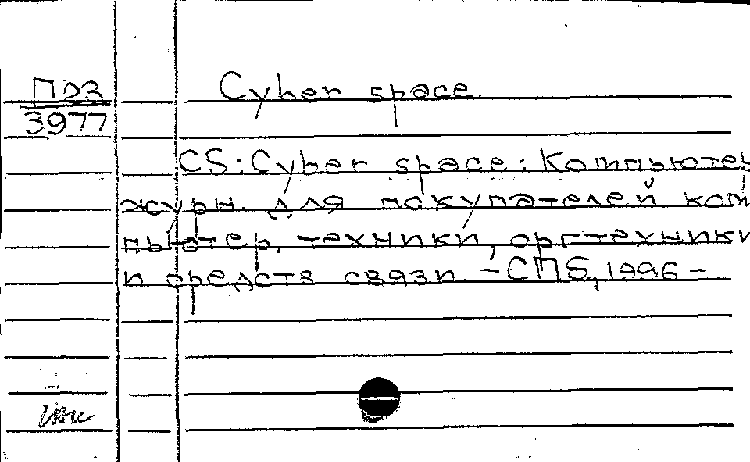 ПВЗ Cyber space
3977
CS: Cyber space: Компьютер
журн. для покупателей ком
пьютер. техники, оргтехники
и средств связи - СПб, 1996 -